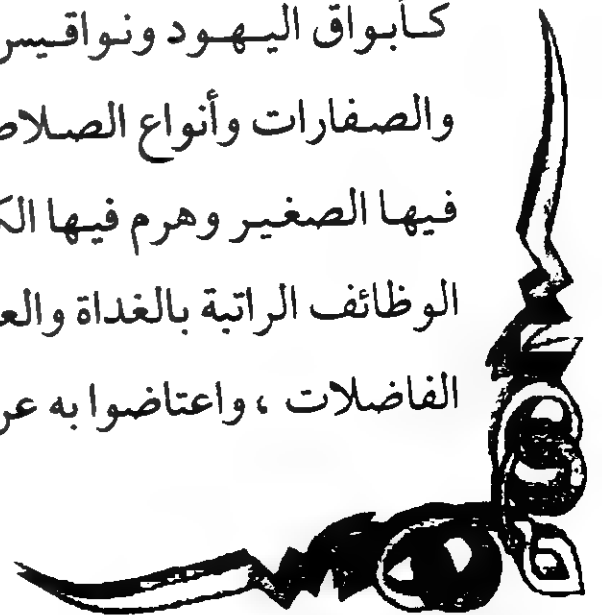 كأبواق اليهود ونواقيس
والصفارات وأنواع
فيها الصغير وهرم فيها
الوظائف الراتبة بالغداة
الفاضلات ، واعتاضوا به